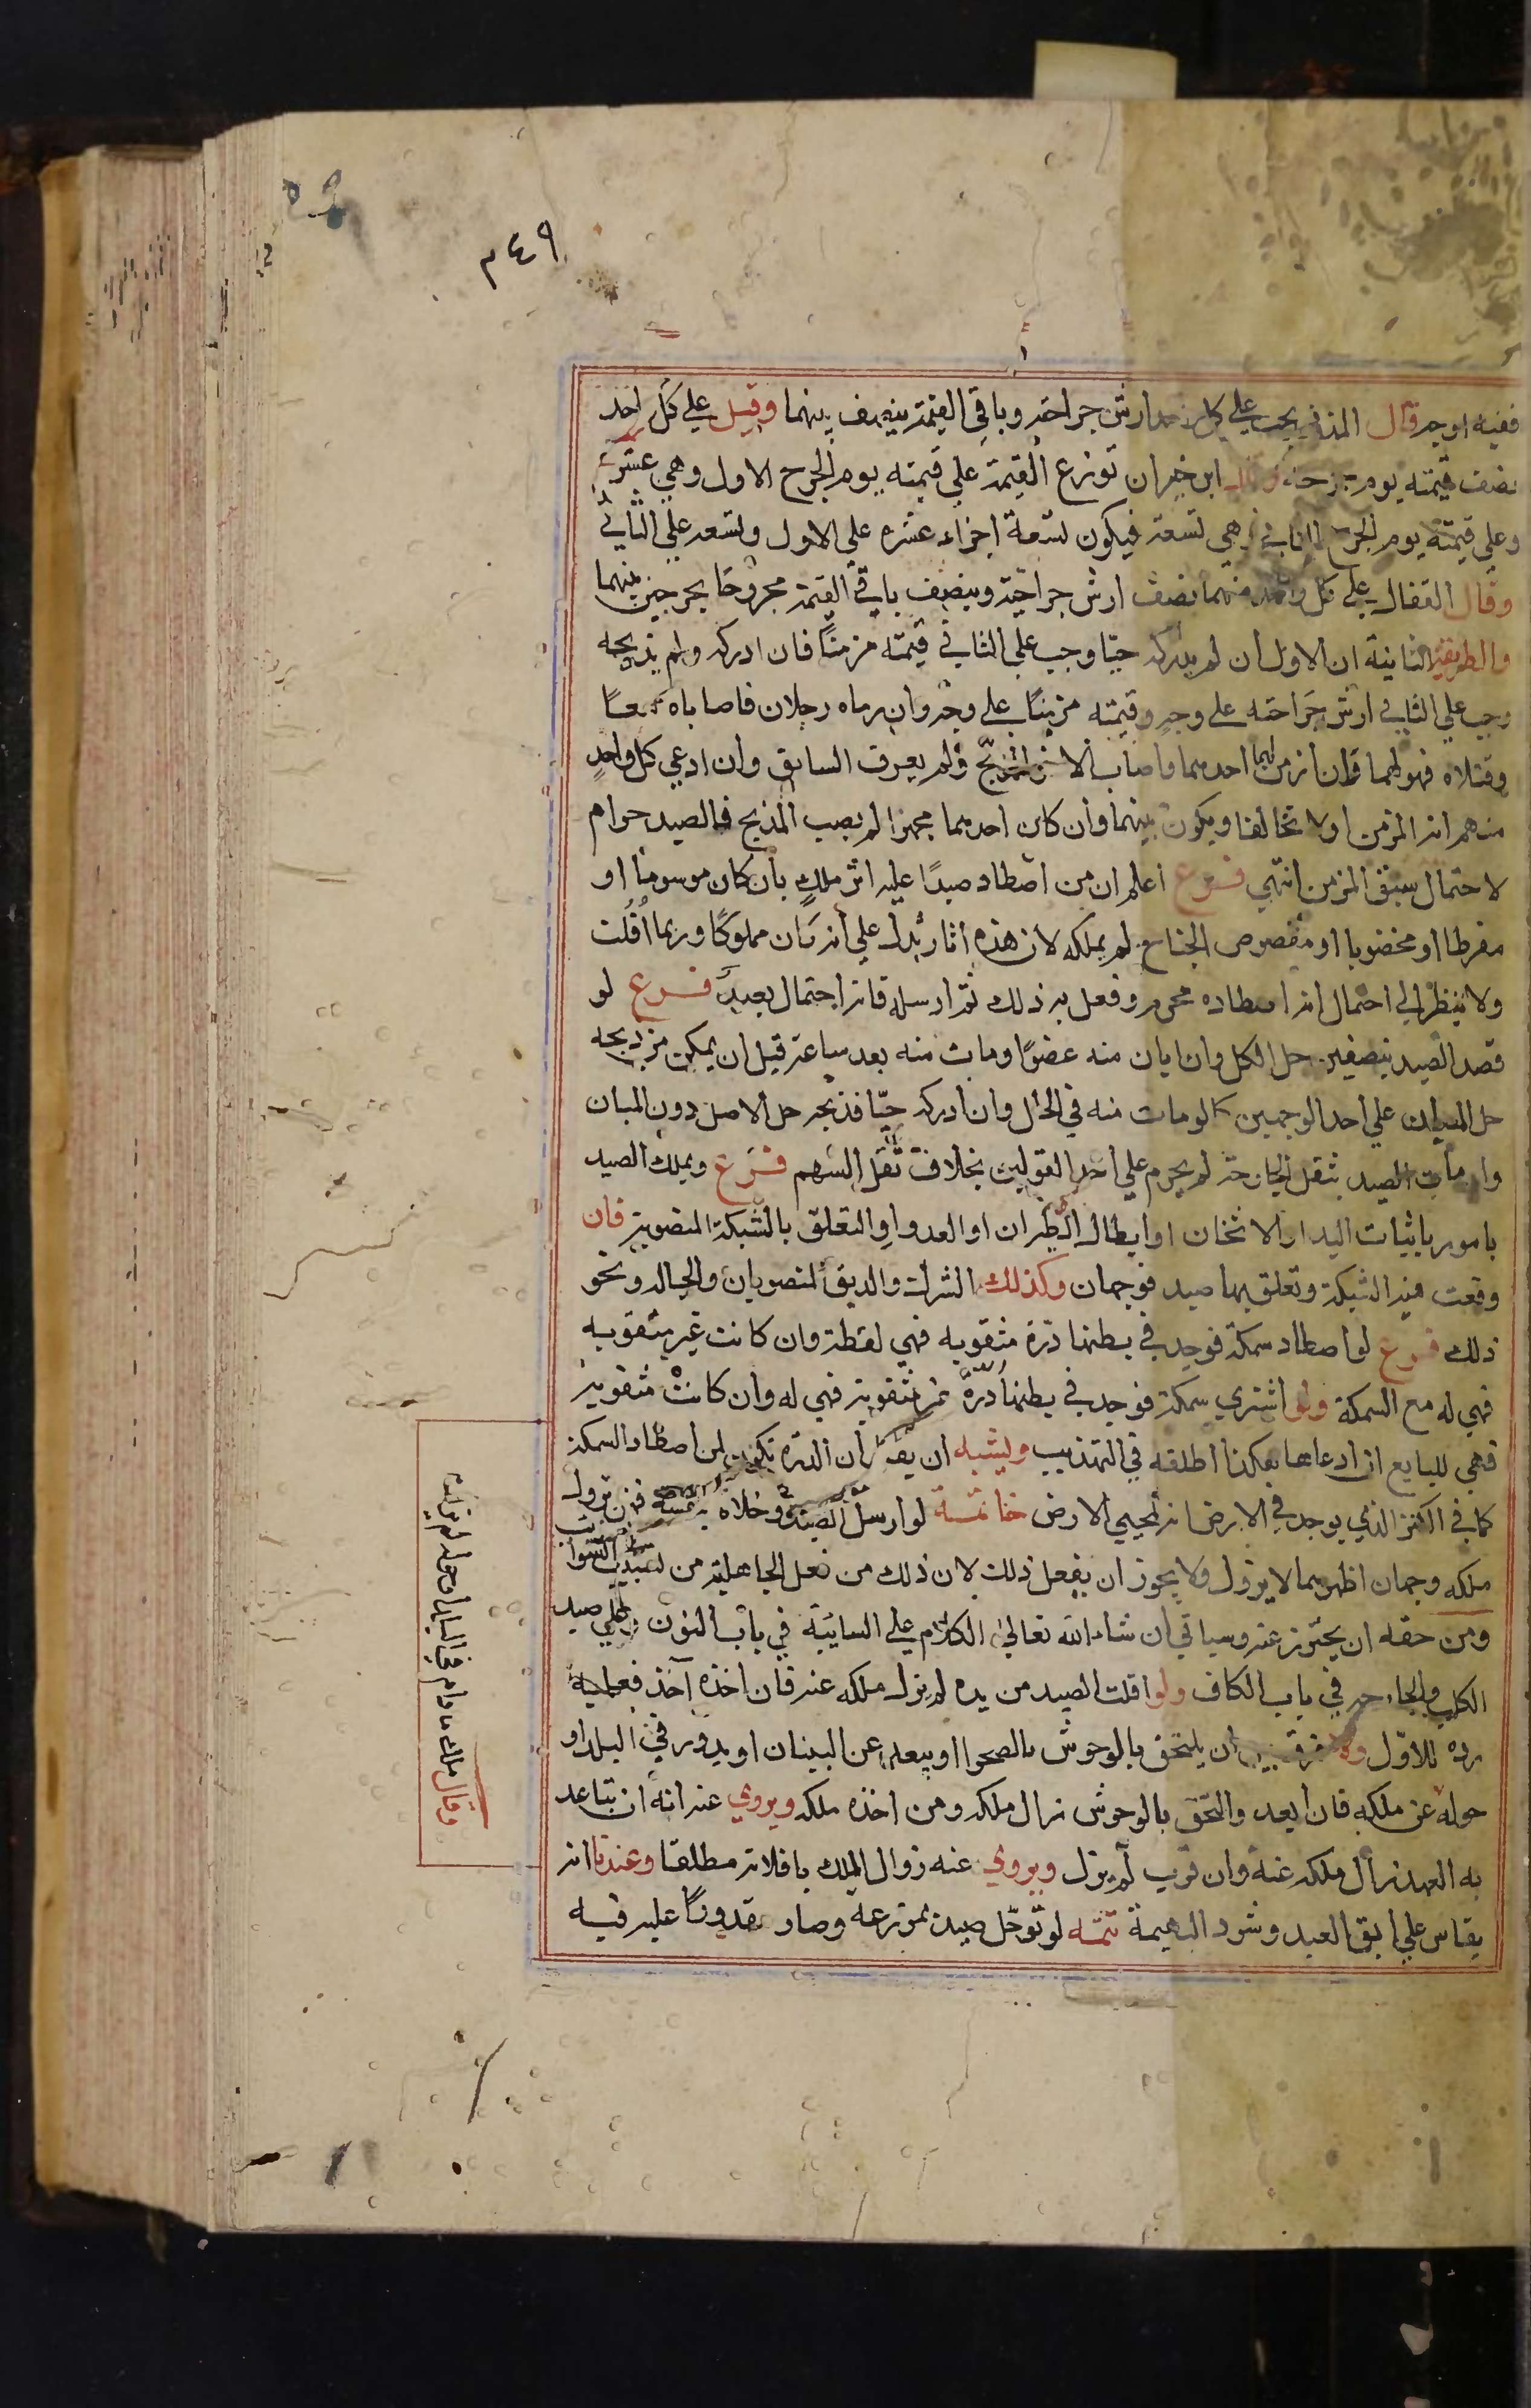 ٤٩م
ففيه اوجه قال المزني يجب على كل واحد ارش جراحته وباقي القيمة ينصف بينهما وقيل على كل واحد
نصف قيمته يوم جرحه وقال ابن خيران توزع القيمة على قيمته يوم الجرح الاول وهي عشرة
وعلى قيمته يوم الجرح الثاني وهي تسعة فيكون تسعة اجزاء عشره على الاول وتسعه على الثاني
وقال القفال على كل واحد منهما نصف ارش جراحته وينصف باقي القيمة مجروحا بجرحين بينهما
والطريقة الثانية ان الاول ان لم يدركه حيّا وجب على الثاني قيمته مزمنًا فان ادركه ولم يذبحه
وجب على الثاني ارش جَراحته على وجه وقيمته مزمنًا على وجه وان رماه رجلان فاصاباه معًا
وقتلاه فهو لهما فان ازمن احدهما واصاب الاخر المذبح ولم يعرف السابق وان ادعى كل واحدٍ
منهم انه المزمن اولا تحالفا ويكون بينهما وان كان احدهما مجهزا لم يصب المذبح فالصيد حرام
لاحتمال سبق المزمن انتهى فرع اعلم ان من اصطاد صيدًا عليه اثر ملكٍ بان كان موسومًا او
مقرطا او مخضوبا او مقصوص الجناح لم يملكه لان هذه اثار تدل على انه كان مملوكًا وربما افلت
ولا ينظر الى احتمال انه اصطاده محرم وفعل به ذلك ثم ارسله فانه احتمال بعيد فرع لو
قصد الصيد بنصفين حل الكل وان ابان منه عضوًا ومات منه بعد ساعة قبل ان يمكن من ذبحه
حل المبان على احد الوجهين كما لو مات منه في الحال وان ادركه حيّا فذبحه حل الاصل دون المبان
وان مات الصيد بثقل الجارحة لم يحرم على احد القولين بخلاف ثقل السهم فرع ويملك الصيد
بامور باثبات اليد او الاثخان او ابطال الطيران او العدو او التعلق بالشبكة المنصوبة فان
وقعت منه الشبكة وتعلق بها صيد فوجهان وكذلك الشرك والدبق المنصوبان والحباله ونحو
ذلك فرع لو اصطاد سمكة فوجد في بطنها درة مثقوبه فهي لقطة وان كانت غير مثقوبه
فهي له مع السمكة ولو اشترى سمكة فوجد في بطنها درّة غير مثقوبة فهي له وان كانت مثقوبة
فهي للبايع ان ادعاها هكذا اطلقه في التهذيب ويشبه ان يقال ان الدرة تكون لمن اصطاد السمكة
كما في الكنز الذي يوجد في الارض انه لمحيي الارض خاتمة لو ارسل الصيد وخلاه بنفسه فهل يزول
ملكه وجهان اظهرهما لا يزول ولا يجوز ان يفعل ذلك لان ذلك من فعل الجاهلية من تسييب السوائب
ومن حقه ان يحترز عنه وسياتي ان شاء الله تعالى الكلام على السائبة في باب النون وعلى صيد
الكلب والجارحه في باب الكاف ولو افلت الصيد من يده لم يزل ملكه عنه فان اخذه آخذ فعليه
رده للاول ولا فرق بين ان يلتحق بالوحوش بالصحرا او يبعد عن البنيان او يدور في البلد او
حوله عن ملكه فان ابعد والتحق بالوحوش زال ملكه ومن اخذه ملكه ويروى عنه انه ان تباعد
به العهد زال ملكه عنه وان قرب لم يزل ويروى عنه زوال الملك بافلاته مطلقا وعندنا انه
يقاس على ابق العبد وشرود البهيمة تتمه لو توحّل صيد بمزرعه وصار مقدورًا عليه فيه
وقال مالك ما دام في البلد او حوله لم يزل